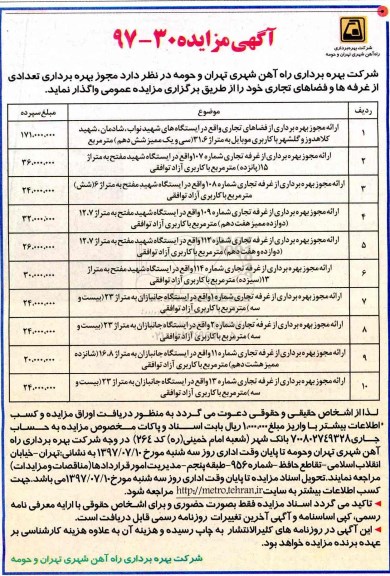 آگهی مزایده ۳۰-۹۷
شرکت بهره برداری
راه آهن شهری تهران و حومه
شرکت بهره برداری راه آهن شهری تهران و حومه در نظر دارد مجوز بهره برداری تعدادی
از غرفه ها و فضاهای تجاری خود را از طریق برگزاری مزایده عمومی واگذار نماید.
ردیف موضوع مبلغ سپرده
۱ ارائه مجوز بهره برداری از فضاهای تجاری واقع در ایستگاه های شهید نواب، شادمان، شهید ۱۷۱.۰۰۰.۰۰۰
کلاهدوز و گلشهر با کاربری موبایل به متراژ ۳۱.۶ (سی و یک ممیز شش دهم) مترمربع
۲ ارائه مجوز بهره برداری از غرفه تجاری شماره ۱۰۷ واقع در ایستگاه شهید مفتح به متراژ ۳۶.۰۰۰.۰۰۰
۱۵ (پانزده) مترمربع با کاربری آزاد توافقی
۳ ارائه مجوز بهره برداری از غرفه تجاری شماره ۱۰۸ واقع در ایستگاه شهید مفتح به متراژ ۶ (شش) ۲۴.۰۰۰.۰۰۰
مترمربع با کاربری آزاد توافقی
۴ ارائه مجوز بهره برداری از غرفه تجاری شماره ۱۰۹ واقع در ایستگاه شهید مفتح به متراژ ۱۲.۷ ۳۲.۰۰۰.۰۰۰
(دوازده ممیز هفت دهم) مترمربع با کاربری آزاد توافقی
۵ ارائه مجوز بهره برداری از غرفه تجاری شماره ۱۱۳ واقع در ایستگاه شهید مفتح به متراژ ۱۲.۷ ۲۶.۰۰۰.۰۰۰
(دوازده و هفت دهم) مترمربع با کاربری آزاد توافقی
۶ ارائه مجوز بهره برداری از غرفه تجاری شماره ۱۱۴ واقع در ایستگاه شهید مفتح به متراژ ۳۰.۰۰۰.۰۰۰
۱۳ (سیزده) مترمربع با کاربری آزاد توافقی
۷ ارائه مجوز بهره برداری از غرفه تجاری شماره ۱ واقع در ایستگاه جانبازان به متراژ ۲۳ (بیست و ۲۴.۰۰۰.۰۰۰
سه) مترمربع با کاربری آزاد توافقی
۸ ارائه مجوز بهره برداری از غرفه تجاری شماره ۲ واقع در ایستگاه جانبازان به متراژ ۲۳ (بیست و ۲۴.۰۰۰.۰۰۰
سه) مترمربع با کاربری آزاد توافقی
۹ ارائه مجوز بهره برداری از غرفه تجاری شماره ۱۱ واقع در ایستگاه جانبازان به متراژ ۱۶.۸ (شانزده ۲۰.۰۰۰.۰۰۰
ممیز هشت دهم) مترمربع با کاربری آزاد توافقی
۱۰ ارائه مجوز بهره برداری از غرفه تجاری شماره ۱۳ واقع در ایستگاه جانبازان به متراژ ۲۳ (بیست و ۲۴.۰۰۰.۰۰۰
سه) مترمربع با کاربری آزاد توافقی
لذا از اشخاص حقیقی و حقوقی دعوت می گردد به منظور دریافت اوراق مزایده و کسب
اطلاعات بیشتر با واریز مبلغ ۱.۰۰۰.۰۰۰ ریال بابت اسناد و پاکات مخصوص مزایده به حساب
جاری ۷۰۰۸۰۲۷۴۹۳۲۸ بانک شهر (شعبه امام خمینی(ره) کد ۲۶۴) در وجه شرکت بهره برداری راه
آهن شهری تهران و حومه تا پایان وقت اداری روز سه شنبه مورخ ۱۳۹۷/۰۷/۱۰ به نشانی: تهران- خیابان
انقلاب اسلامی- تقاطع حافظ- شماره ۹۵۶- طبقه پنجم- مدیریت امور قراردادها (مناقصات و مزایدات)
مراجعه نمایند. تحویل اسناد مزایده تا پایان وقت اداری روز سه شنبه مورخ ۱۳۹۷/۰۷/۱۰ می باشد. جهت
کسب اطلاعات بیشتر به سایت http://metro.tehran.ir مراجعه شود.
تاکید می گردد اسناد مزایده فقط بصورت حضوری و برای اشخاص حقوقی با ارایه معرفی نامه
رسمی، کپی اساسنامه و آگهی آخرین تغییرات روزنامه رسمی قابل دریافت است.
این آگهی در روزنامه های کثیرالانتشار به چاپ رسیده و هزینه آن به علاوه هزینه کارشناسی بر
عهده برنده مزایده خواهد بود.
شرکت بهره برداری راه آهن شهری تهران و حومه